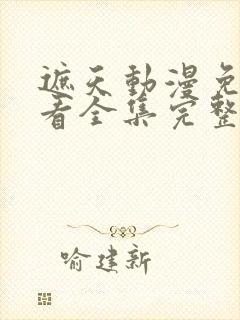 遮天動漫免
看全集完整
喻建新